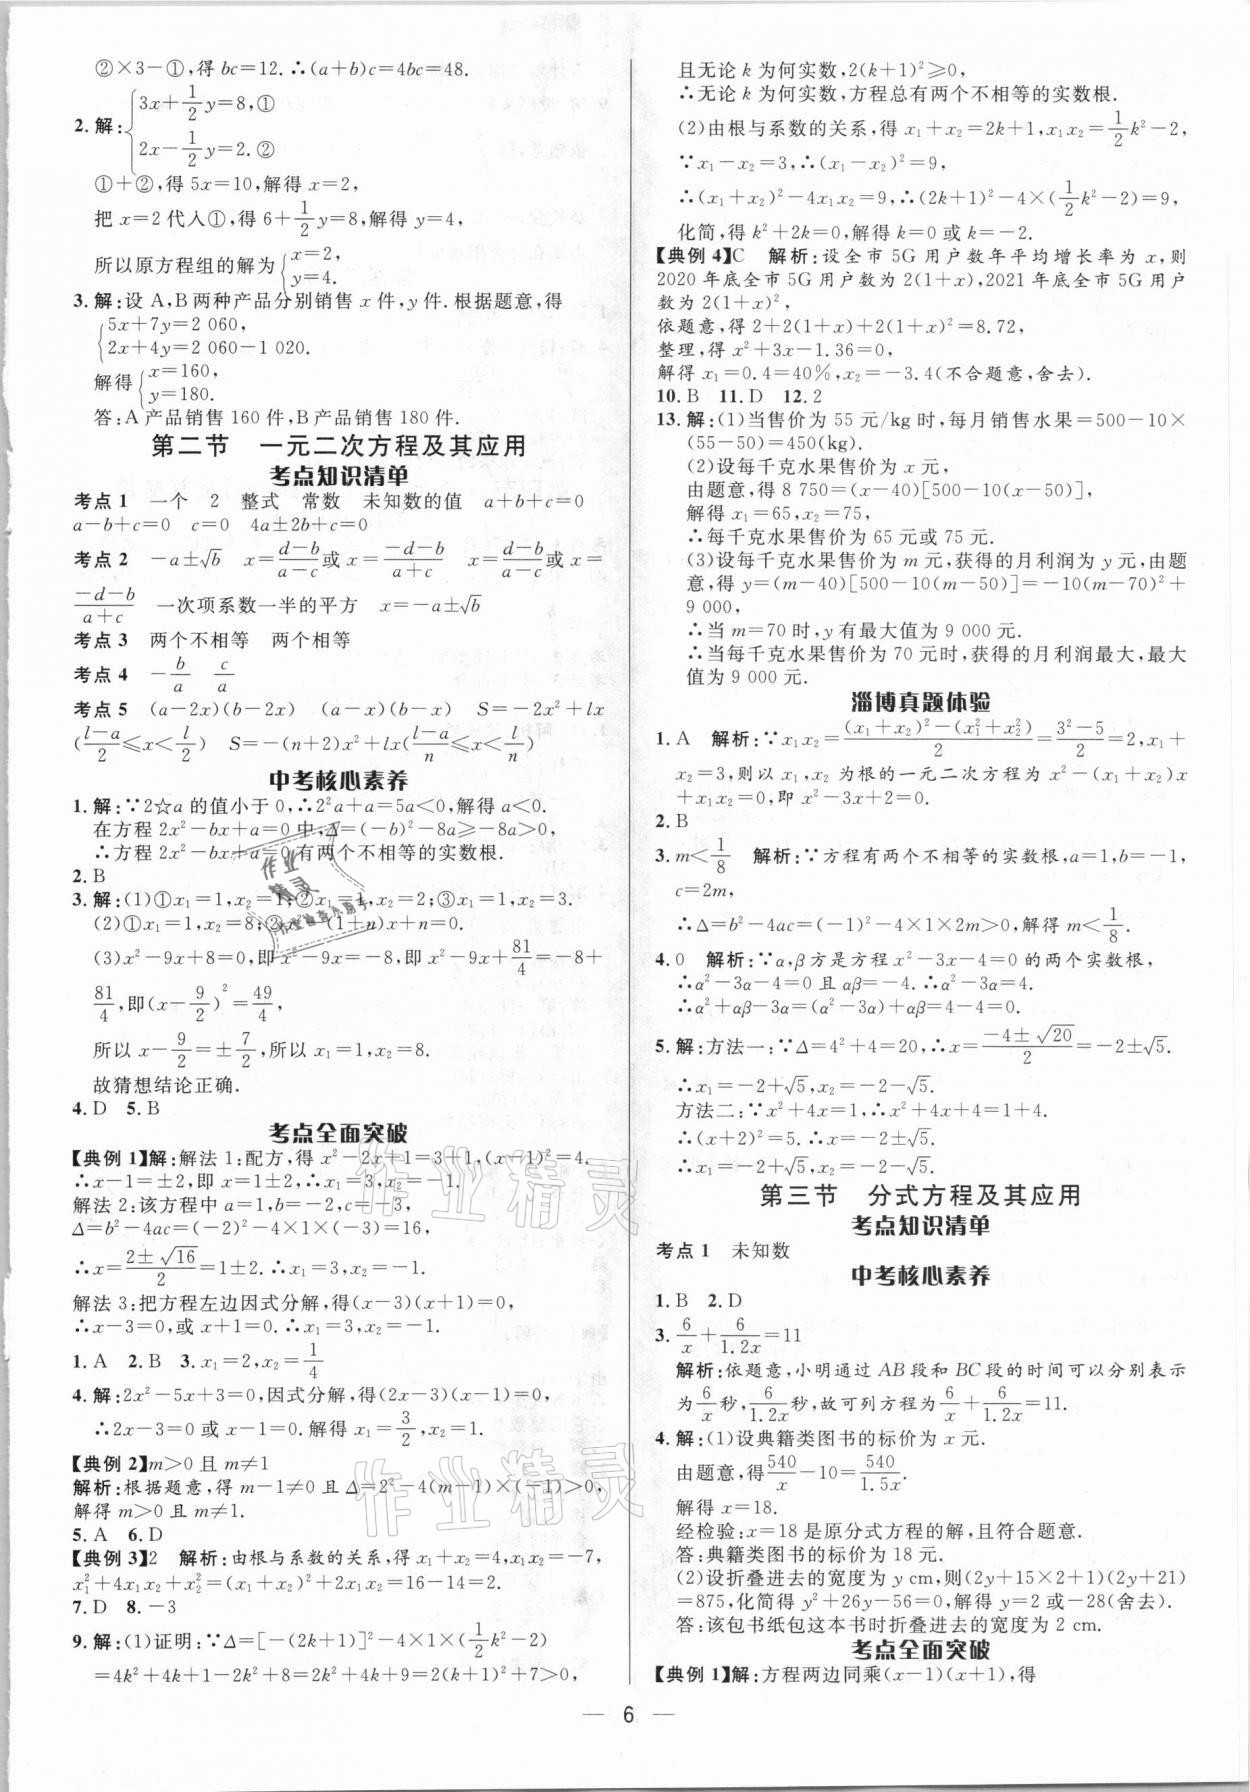 ②×3-①,得 bc=12.∴(a+b)c=4bc=48.
2.解:{3x+1/2y=8,①
2x-1/2y=2.②
①+②,得 5x=10,解得 x=2,
把 x=2 代入①,得 6+1/2y=8,解得 y=4,
所以原方程组的解为{x=2,
y=4.
3.解:设 A,B 两种产品分别销售 x 件,y 件.根据题意,得
{5x+7y=2 060,
2x+4y=2 060-1 020.
解得{x=160,
y=180.
答:A 产品销售 160 件,B 产品销售 180 件.
第二节 一元二次方程及其应用
考点知识清单
考点 1 一个 2 整式 常数 未知数的值 a+b+c=0
a-b+c=0 c=0 4a±2b+c=0
考点 2 -a±√b x=(d-b)/(a-c)或 x=(-d-b)/(a+c) x=(d-b)/(a-c)或 x=
(-d-b)/(a+c) 一次项系数一半的平方 x=-a±√b
考点 3 两个不相等 两个相等
考点 4 -b/a c/a
考点 5 (a-2x)(b-2x) (a-x)(b-x) S=-2x²+lx
((l-a)/2≤x<l/2) S=-(n+2)x²+lx((l-a)/n≤x<l/n)
中考核心素养
1.解:∵2☆a 的值小于 0,∴2²a+a=5a<0,解得 a<0.
在方程 2x²-bx+a=0 中,Δ=(-b)²-8a≥-8a>0,
∴方程 2x²-bx+a=0 有两个不相等的实数根.
2.B
3.解:(1)①x₁=1,x₂=1;②x₁=1,x₂=2;③x₁=1,x₂=3.
(2)①x₁=1,x₂=8;②x²-(1+n)x+n=0.
(3)x²-9x+8=0,即 x²-9x=-8,即 x²-9x+81/4=-8+
81/4,即(x-9/2)²=49/4,
所以 x-9/2=±7/2,所以 x₁=1,x₂=8.
故猜想结论正确.
4.D 5.B
考点全面突破
【典例 1】解:解法 1:配方,得 x²-2x+1=3+1,(x-1)²=4.
∴x-1=±2,即 x=1±2,∴x₁=3,x₂=-1.
解法 2:该方程中 a=1,b=-2,c=-3,
Δ=b²-4ac=(-2)²-4×1×(-3)=16,
∴x=(2±√16)/2=1±2.∴x₁=3,x₂=-1.
解法 3:把方程左边因式分解,得(x-3)(x+1)=0,
∴x-3=0,或 x+1=0.∴x₁=3,x₂=-1.
1.A 2.B 3.x₁=2,x₂=1/4
4.解:2x²-5x+3=0,因式分解,得(2x-3)(x-1)=0,
∴2x-3=0 或 x-1=0.解得 x₁=3/2,x₂=1.
【典例 2】m>0 且 m≠1
解析:根据题意,得 m-1≠0 且 Δ=2²-4(m-1)×(-1)>0,
解得 m>0 且 m≠1.
5.A 6.D
【典例 3】2 解析:由根与系数的关系,得 x₁+x₂=4,x₁x₂=-7,
x₁²+4x₁x₂+x₂²=(x₁+x₂)²+2x₁x₂=16-14=2.
7.D 8.-3
9.解:(1)证明:∵Δ=[-(2k+1)]²-4×1×(1/2k²-2)
=4k²+4k+1-2k²+8=2k²+4k+9=2(k+1)²+7>0,
且无论 k 为何实数,2(k+1)²≥0,
∴无论 k 为何实数,方程总有两个不相等的实数根.
(2)由根与系数的关系,得 x₁+x₂=2k+1,x₁x₂=1/2k²-2,
∵x₁-x₂=3,∴(x₁-x₂)²=9,
∴(x₁+x₂)²-4x₁x₂=9,∴(2k+1)²-4×(1/2k²-2)=9,
化简,得 k²+2k=0,解得 k=0 或 k=-2.
【典例 4】C 解析:设全市 5G 用户数年平均增长率为 x,则
2020 年底全市 5G 用户数为 2(1+x),2021 年底全市 5G 用户
数为 2(1+x)²,
依题意,得 2+2(1+x)+2(1+x)²=8.72,
整理,得 x²+3x-1.36=0,
解得 x₁=0.4=40%,x₂=-3.4(不合题意,舍去).
10.B 11.D 12.2
13.解:(1)当售价为 55 元/kg 时,每月销售水果=500-10×
(55-50)=450(kg).
(2)设每千克水果售价为 x 元,
由题意,得 8 750=(x-40)[500-10(x-50)],
解得 x₁=65,x₂=75,
∴每千克水果售价为 65 元或 75 元.
(3)设每千克水果售价为 m 元,获得的月利润为 y 元,由题
意,得 y=(m-40)[500-10(m-50)]=-10(m-70)²+
9 000,
∴当 m=70 时,y 有最大值为 9 000 元.
∴当每千克水果售价为 70 元时,获得的月利润最大,最大
值为 9 000 元.
淄博真题体验
1.A 解析:∵x₁x₂=((x₁+x₂)²-(x₁²+x₂²))/2=(3²-5)/2=2,x₁+
x₂=3,则以 x₁,x₂ 为根的一元二次方程为 x²-(x₁+x₂)x
+x₁x₂=0,即 x²-3x+2=0.
2.B
3.m<1/8 解析:∵方程有两个不相等的实数根,a=1,b=-1,
c=2m,
∴Δ=b²-4ac=(-1)²-4×1×2m>0,解得 m<1/8.
4.0 解析:∵α,β方是方程 x²-3x-4=0 的两个实数根,
∴α²-3α-4=0 且 αβ=-4.∴α²-3α=4.
∴α²+αβ-3α=(α²-3α)+αβ=4-4=0.
5.解:方法一:∵Δ=4²+4=20,∴x=(-4±√20)/2=-2±√5.
∴x₁=-2+√5,x₂=-2-√5.
方法二:∵x²+4x=1,∴x²+4x+4=1+4.
∴(x+2)²=5.∴x+2=±√5.
∴x₁=-2+√5,x₂=-2-√5.
第三节 分式方程及其应用
考点知识清单
考点 1 未知数
中考核心素养
1.B 2.D
3.6/x+6/1.2x=11
解析:依题意,小明通过 AB 段和 BC 段的时间可以分别表示
为6/x秒,6/1.2x秒,故可列方程为6/x+6/1.2x=11.
4.解:(1)设典籍类图书的标价为 x 元.
由题意,得540/x-10=540/1.5x.
解得 x=18.
经检验:x=18 是原分式方程的解,且符合题意.
答:典籍类图书的标价为 18 元.
(2)设折叠进去的宽度为 y cm,则(2y+15×2+1)(2y+21)
=875,化简得 y²+26y-56=0,解得 y=2 或-28(舍去).
答:该包书纸包这本书时折叠进去的宽度为 2 cm.
考点全面突破
【典例 1】解:方程两边同乘(x-1)(x+1),得
6
作业精灵
作业精灵
作业
精灵